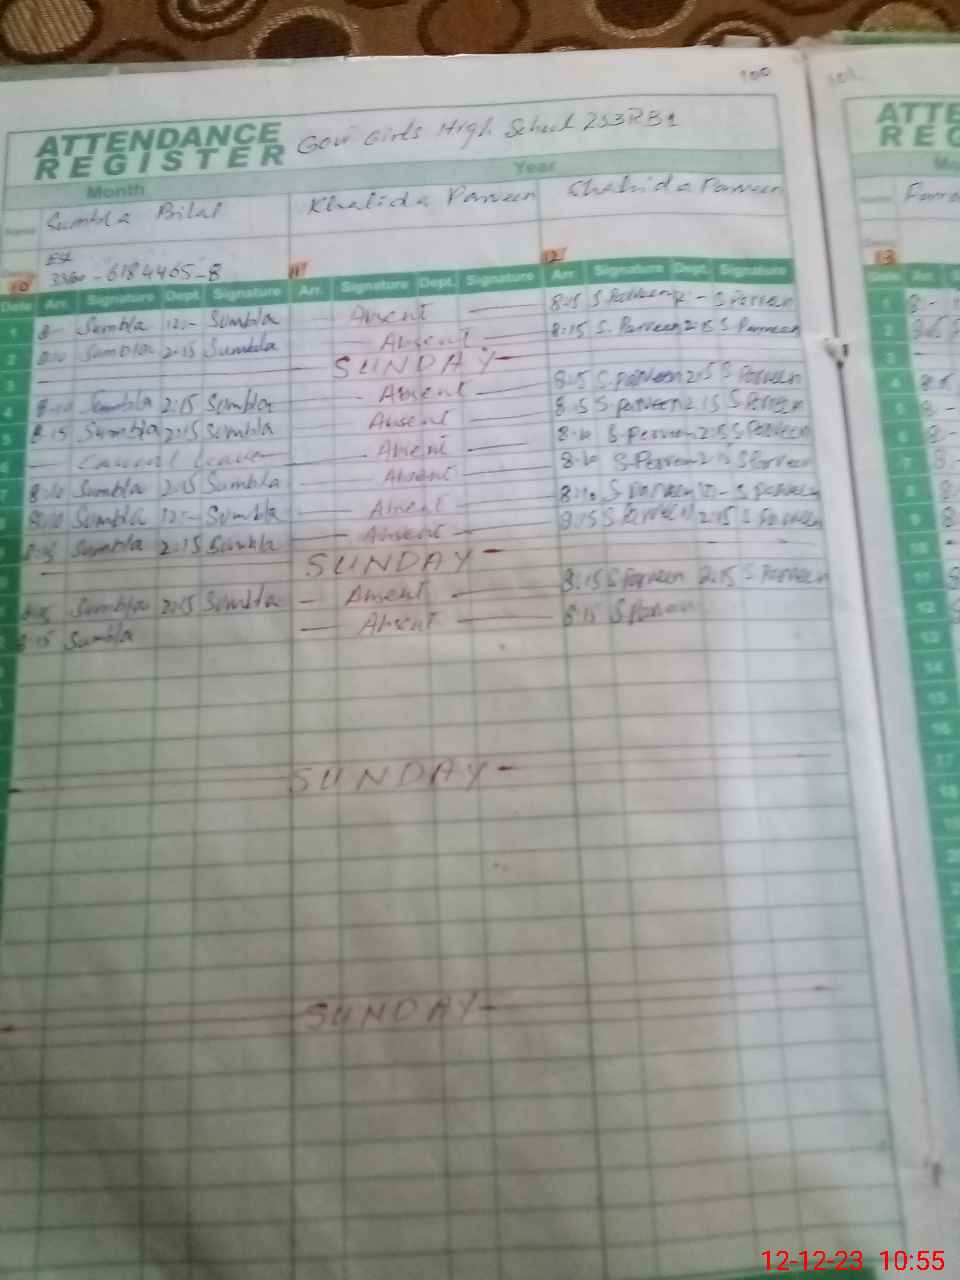 100 101
ATTENDANCE REGISTER Govt Girls High School 253RB1
ATTE
REG
Month Year
Sumbla Bilal Khalida Parveen Shahida Parveen
EST
-6184465-8
10 11 12 13
Date Arr. Signature Dept. Signature Arr. Signature Dept. Signature Arr. Signature Dept. Signature Date Arr.
1 8- Sumbla 12:- Sumbla Absent 8:15 S Parveen 12:- S Parveen 1
2 8:10 Sumbla 2:15 Sumbla Absent 8:15 S. Parveen 2:15 S Parveen 2
3 SUNDAY 3
4 8:10 Sumbla 2:15 Sumbla Absent 8:15 S. Parveen 2:15 S Parveen 4
5 8:15 Sumbla 2:15 Sumbla Absent 8:15 S. Parveen 2:15 S Parveen 5
6 Casual leave Absent 8:10 S. Parveen 2:15 S Parveen 6
7 8:10 Sumbla 2:15 Sumbla Absent 8:10 S. Parveen 2:15 S Parveen 7
8:10 Sumbla 12:- Sumbla Absent 8:10 S Parveen 12:- S Parveen 8
8:15 Sumbla 2:15 Sumbla Absent 8:15 S Parveen 2:15 S Parveen 9
SUNDAY 10
8:15 Sumbla 2:15 Sumbla Absent 8:15 S Parveen 2:15 S Parveen 11
8:15 Sumbla Absent 8:15 S Parveen 12
13
14
15
16
SUNDAY 17
18
19
SUNDAY
12-12-23 10:55